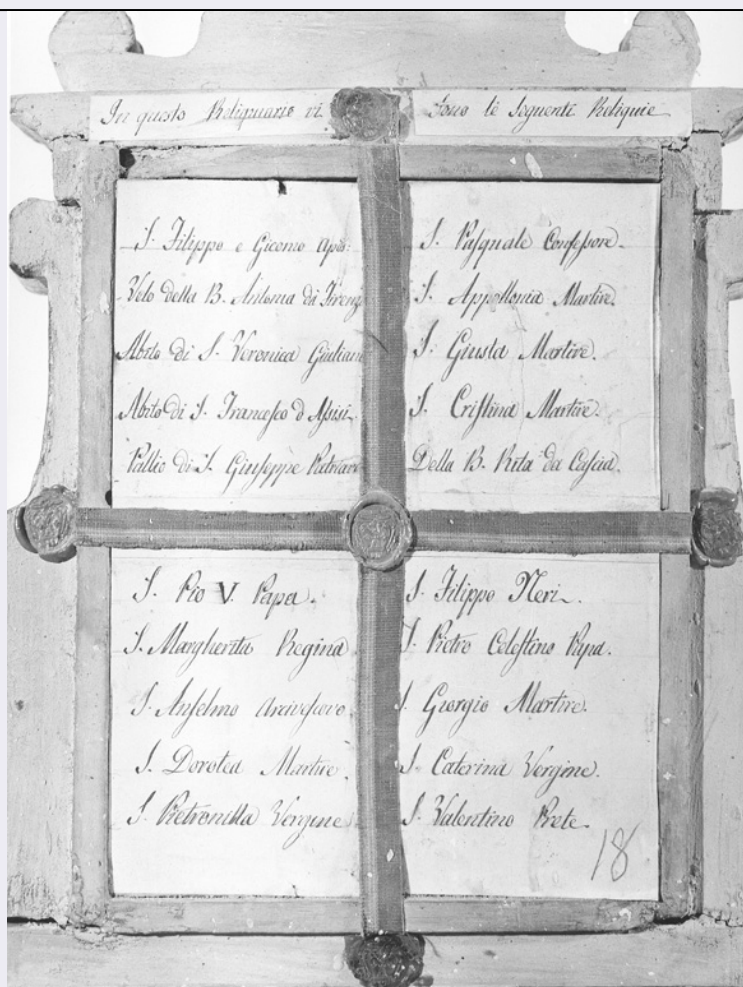 In questo Reliquiario vi sono le seguenti Reliquie
S. Filippo e Giacomo Apos:
Velo della B. Antonia di Firenz
Abito di S. Veronica Giulian
Abito di S. Francesco d Assisi
Pallio di S. Giuseppe Patriar
S. Pasquale Confessore.
S. Appollonia Martire.
S. Giusta Martire.
S. Cristina Martire.
Della B. Rita da Cascia.
S. Pio V. Papa.
S. Margherita Regina
S. Anselmo Arcivescovo
S. Dorotea Martire.
S. Petronilla Vergine
S. Filippo Neri.
S. Pietro Celestino Papa.
S. Giorgio Martire.
S. Caterina Vergine.
S. Valentino Prete
18